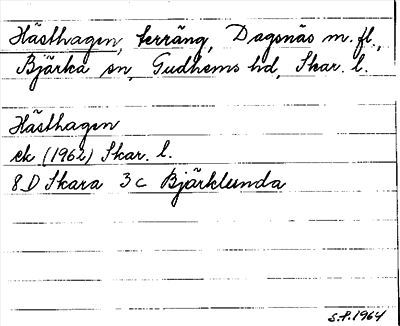 Hästhagen, terräng, Dagsnäs m. fl.,
Bjärka sn, Gudhems hd, Skar. l.
Hästhagen
ek (1962) Skar. l.
8D Skara 3c Bjärklunda
S.P. 1964